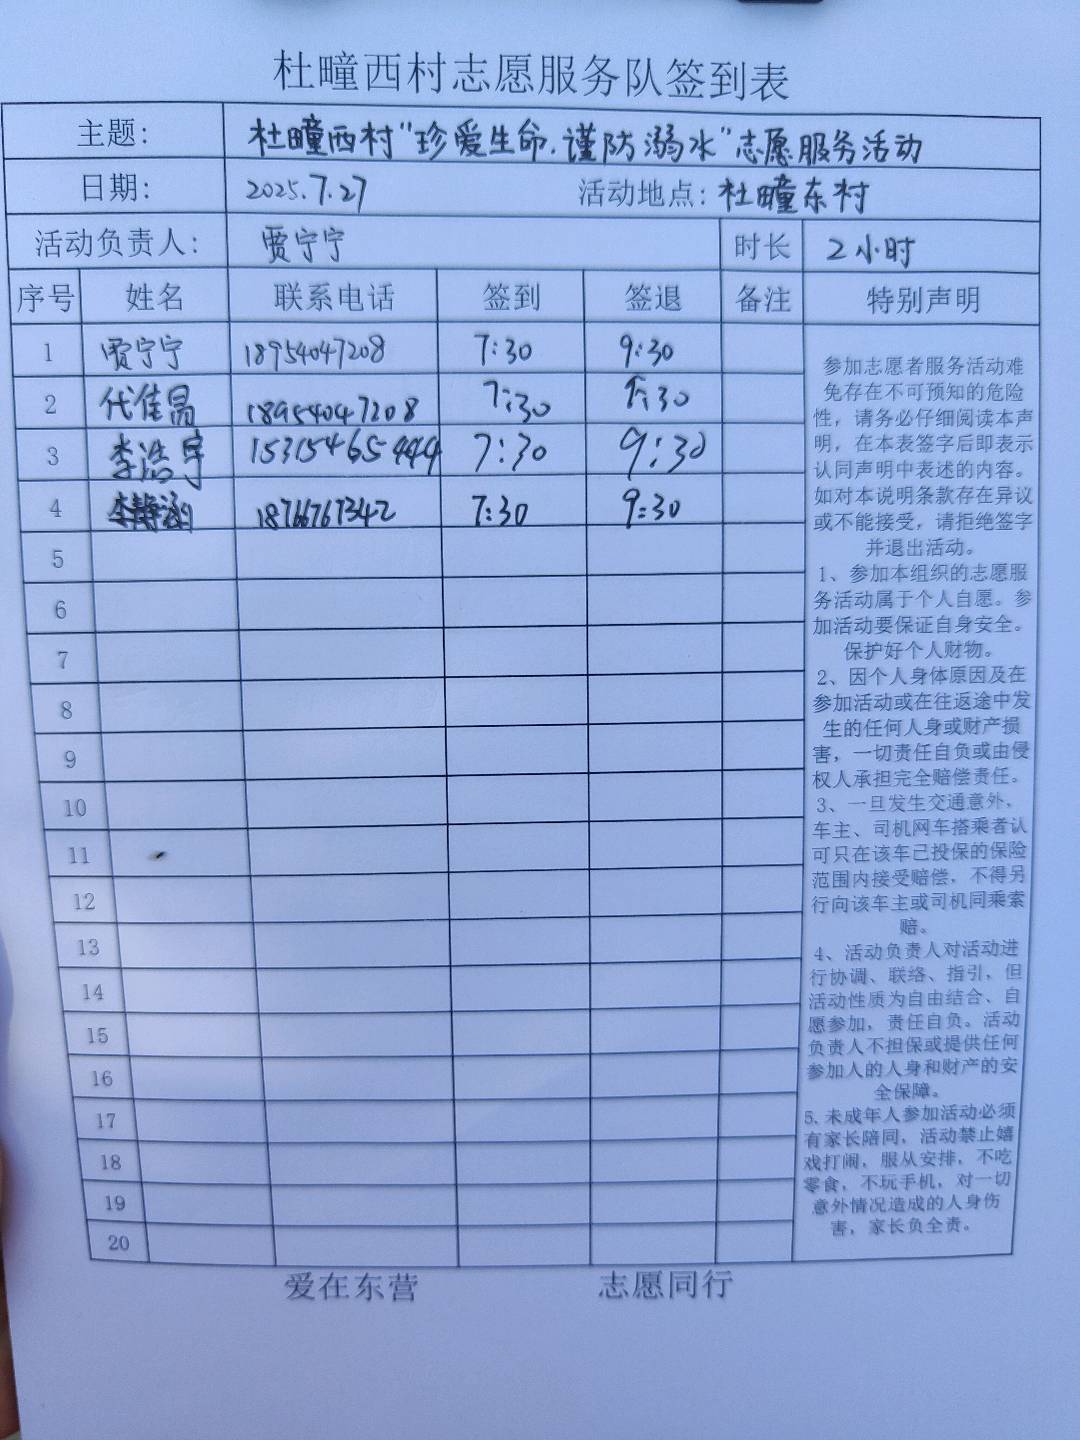 杜疃西村志愿服务队签到表
主题: 杜疃西村"珍爱生命.谨防溺水"志愿服务活动
日期: 2025.7.27 活动地点: 杜疃东村
活动负责人: 贾宁宁 时长 2小时
序号 姓名 联系电话 签到 签退 备注 特别声明
1 贾宁宁 18954047208 7:30 9:30
2 代佳昌 18954047208 7:30 9:30
3 李浩宇 15315465444 7:30 9:30
4 李静涵 18766767342 7:30 9:30
5
6
7
8
9
10
11
12
13
14
15
16
17
18
19
20
参加志愿者服务活动难
免存在不可预知的危险
性，请务必仔细阅读本声
明，在本表签字后即表示
认同声明中表述的内容。
如对本说明条款存在异议
或不能接受，请拒绝签字
并退出活动。
1、参加本组织的志愿服
务活动属于个人自愿。参
加活动要保证自身安全。
保护好个人财物。
2、因个人身体原因及在
参加活动或在往返途中发
生的任何人身或财产损
害，一切责任自负或由侵
权人承担完全赔偿责任。
3、一旦发生交通意外，
车主、司机网车搭乘者认
可只在该车已投保的保险
范围内接受赔偿，不得另
行向该车主或司机同乘索
赔。
4、活动负责人对活动进
行协调、联络、指引，但
活动性质为自由结合、自
愿参加，责任自负。活动
负责人不担保或提供任何
参加人的人身和财产的安
全保障。
5.未成年人参加活动必须
有家长陪同，活动禁止嬉
戏打闹，服从安排，不吃
零食，不玩手机，对一切
意外情况造成的人身伤
害，家长负全责。
爱在东营 志愿同行